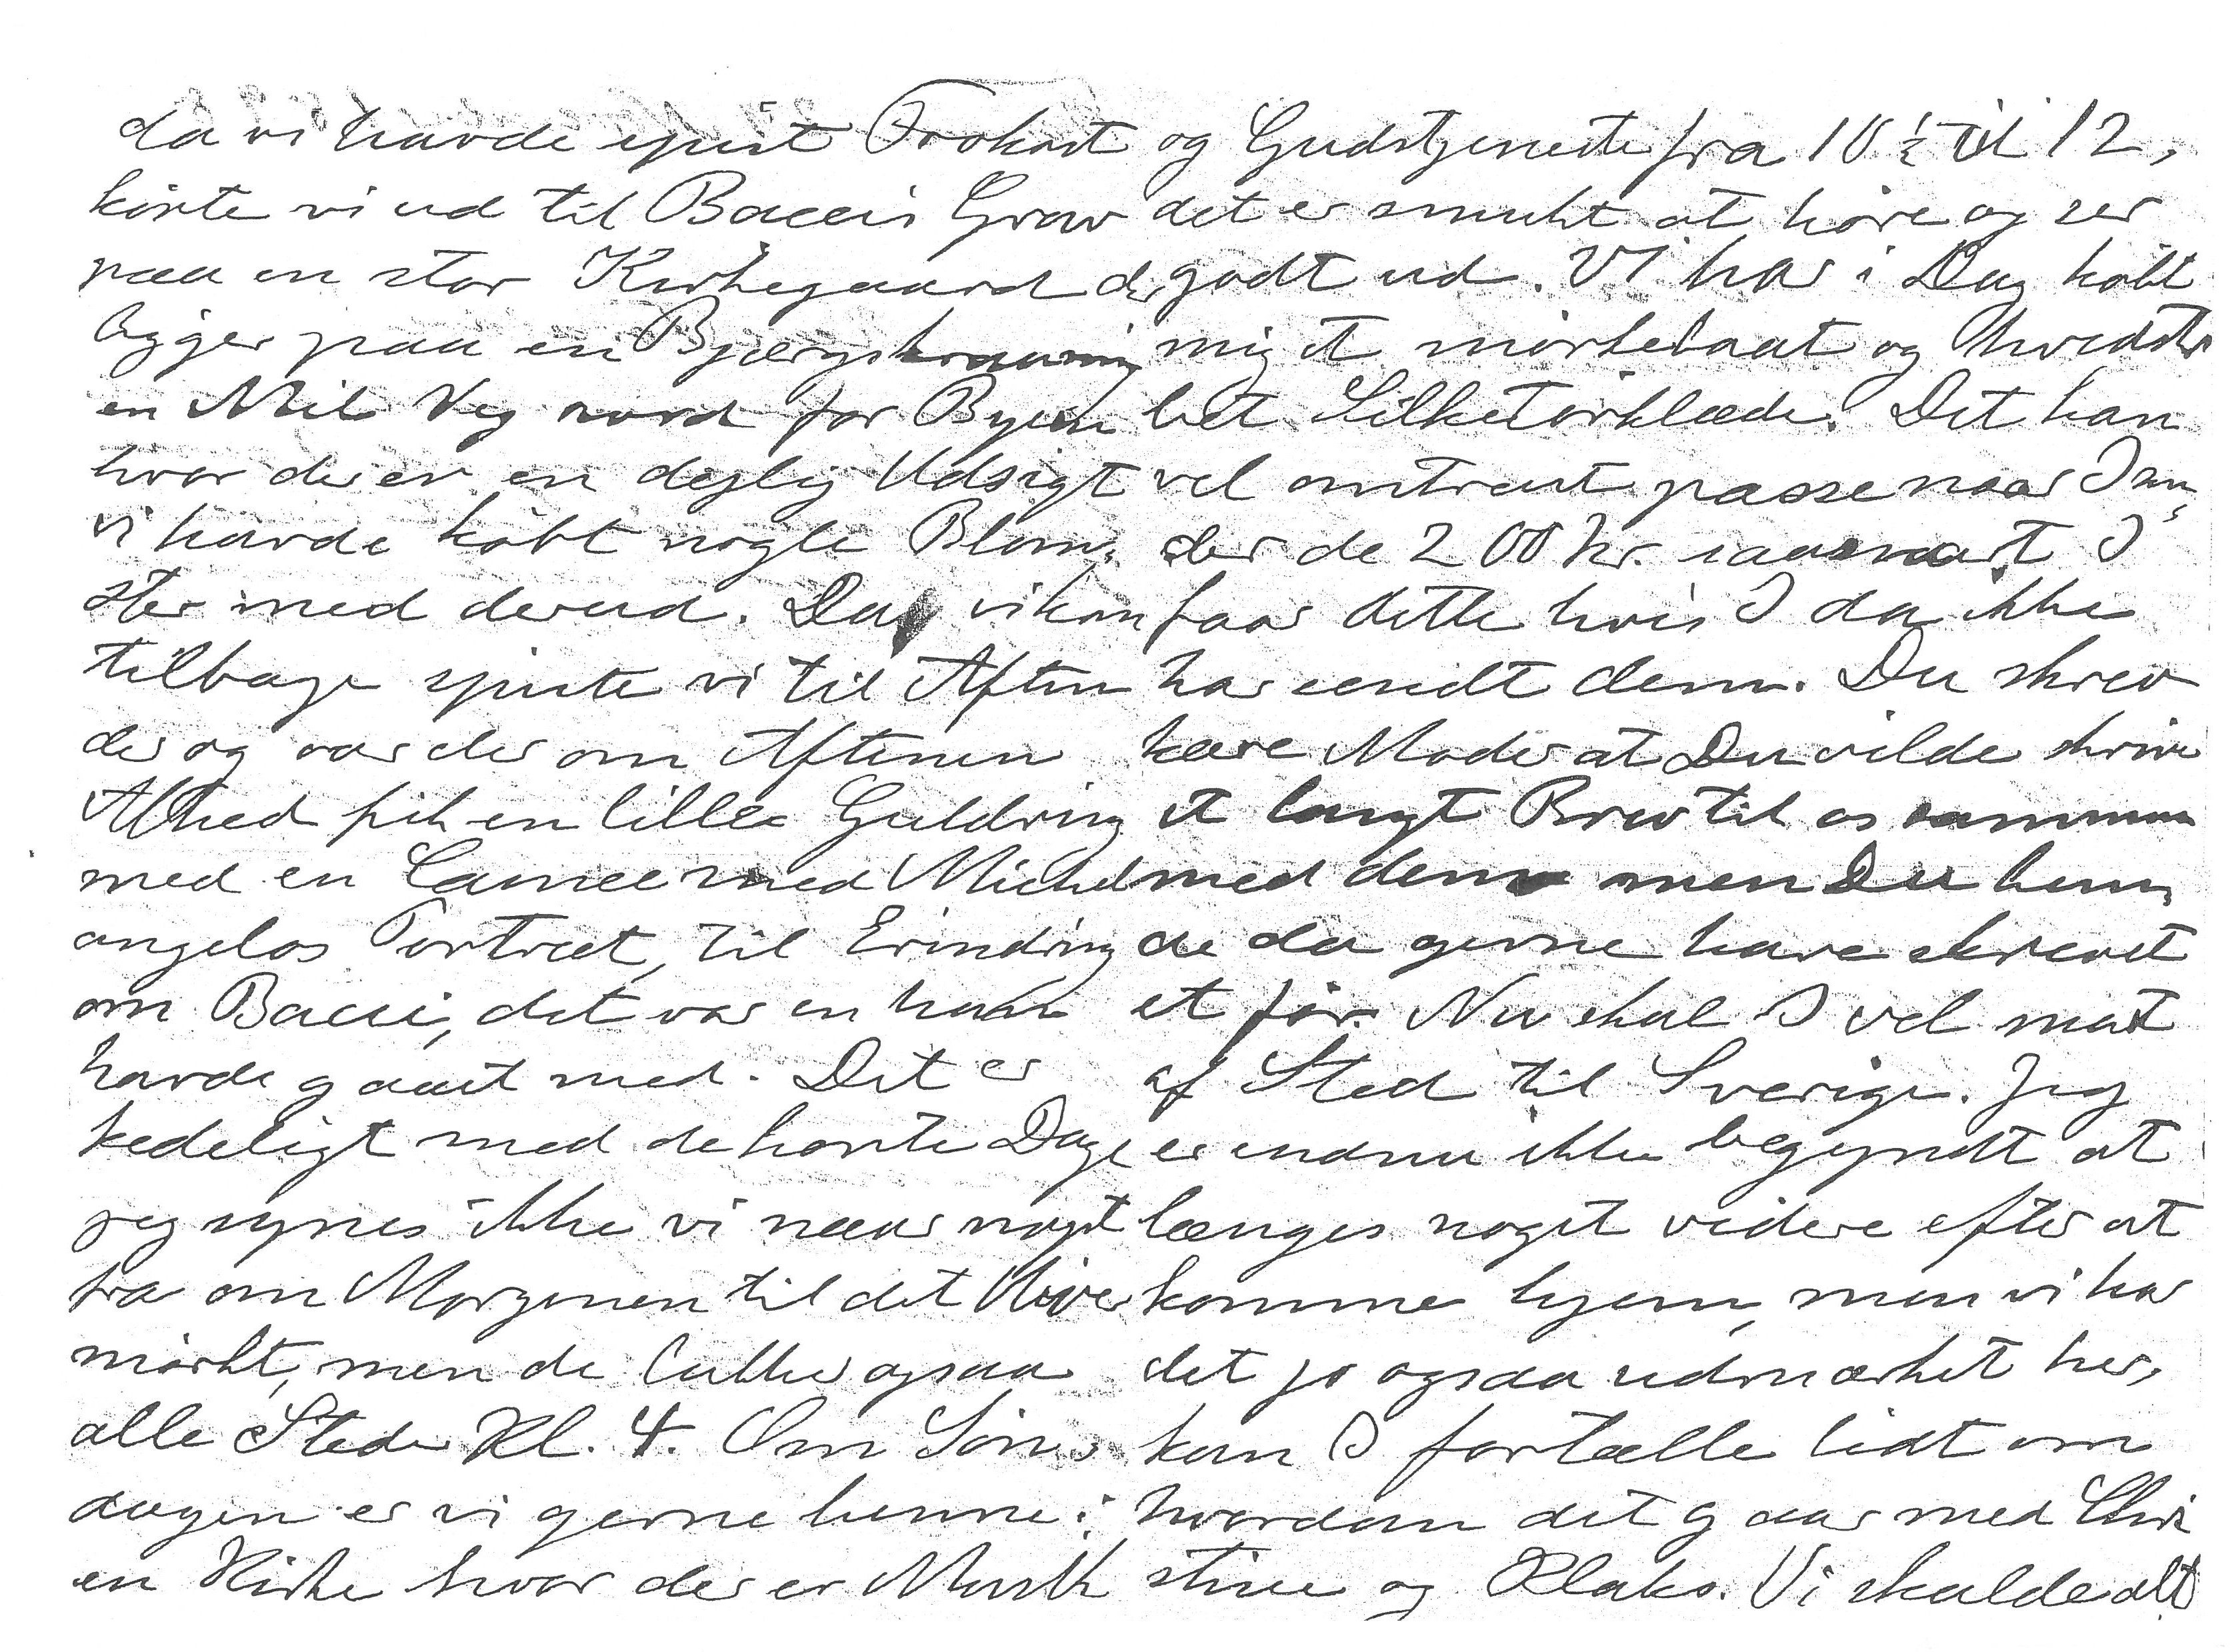 da vi havde spist Frokost
kørte vi ud til Baccis Grav
paa en stor Kirkegaard der
ligger paa en Bjærgskraaning
en Mil Vej nord for Byen
hvor der er en dejlig Udsigt
vi havde købt nogle Blom-
ster med derud. Da vi kom
tilbage spiste vi til Aften
der og var der om Aftenen
Alhed fik en lille Guldring
med en Camee med Michel
angelos Portræt, til Erindring
om Bacci, det var en han
havde gaaet med. Det er
kedeligt med de korte Dage
jeg synes ikke vi naar noget
fra om Morgenen til det bliver
mørkt, men de lukker ogsaa
alle Steder Kl. 4. Om Søn-
dagen er vi gerne henne i
en Kirke hvor der er Musik
og Gudstjeneste fra 10½ til 12,
det er smukt at høre og ser
godt ud. Vi har i Dag købt
mig et mørkeblaat og hvidstri
bet Silketørklæde. Det kan
vel omtrent passe naar I sen-
der de 200 Kr. saasnart I
faar dette hvis I da ikke
har sendt dem. Du skrev
kære Moder at Du vilde skrive
et langt Brev til os sammen
med dem men Du kun-
de da gerne have skrevet
et før. Nu skal I vel snart
af Sted til Sverige. Jeg
er endnu ikke begyndt at
længes noget videre efter at
komme hjem, men vi har
det jo ogsaa udmærket her,
kan I fortælle lidt om
hvordan det gaar med Chri
stine og Klaks. Vi skulde alt